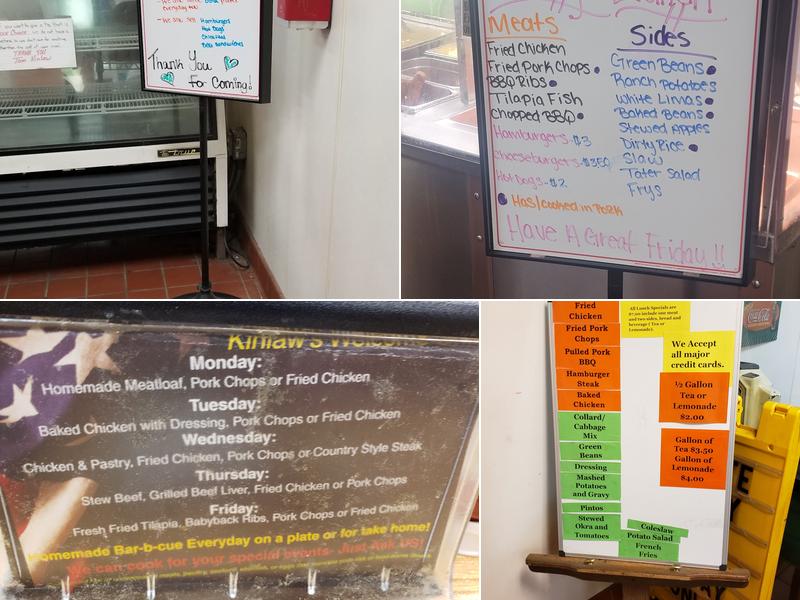 everyday too!
- We also sell Hamburgers
Hot Dogs
BBQ Sandwiches
Thank You
For Coming!
THANK YOU
True
Meats
Fried Chicken
Fried Pork Chops
BBQ Ribs
Tilapia Fish
Chopped BBQ
Hamburgers-$3
Cheeseburgers-$3.50
Hot Dogs-$2
Has/cooked in Pork
Have A Great Friday!!
Sides
Green Beans
Ranch Potatoes
White Limas
Baked Beans
Stewed Apples
Dirty Rice
Slaw
Tater Salad
Frys
Kinlaw's Welcome
Monday:
Homemade Meatloaf, Pork Chops or Fried Chicken
Tuesday:
Baked Chicken with Dressing, Pork Chops or Fried Chicken
Wednesday:
Chicken & Pastry, Fried Chicken, Pork Chops or Country Style Steak
Thursday:
Stew Beef, Grilled Beef Liver, Fried Chicken or Pork Chops
Friday:
Fresh Fried Tilapia, Babyback Ribs, Pork Chops or Fried Chicken
Homemade Bar-b-cue Everyday on a plate or for take home!
We can cook for your special events- Just Ask US!
Fried
Chicken
Fried Pork
Chops
Pulled Pork
BBQ
Hamburger
Steak
Baked
Chicken
Collard/
Cabbage
Mix
Green
Beans
Dressing
Mashed
Potatoes
and Gravy
Pintos
Stewed
Okra and
Tomatoes
All Lunch Specials are
$7.00 include one meat
and two sides, bread and
beverage ( Tea or
Lemonade).
We Accept
all major
credit cards.
½ Gallon
Tea or
Lemonade
$2.00
Gallon of
Tea $3.50
Gallon of
Lemonade
$4.00
Coleslaw
Potato Salad
French
Fries
Coca-Cola